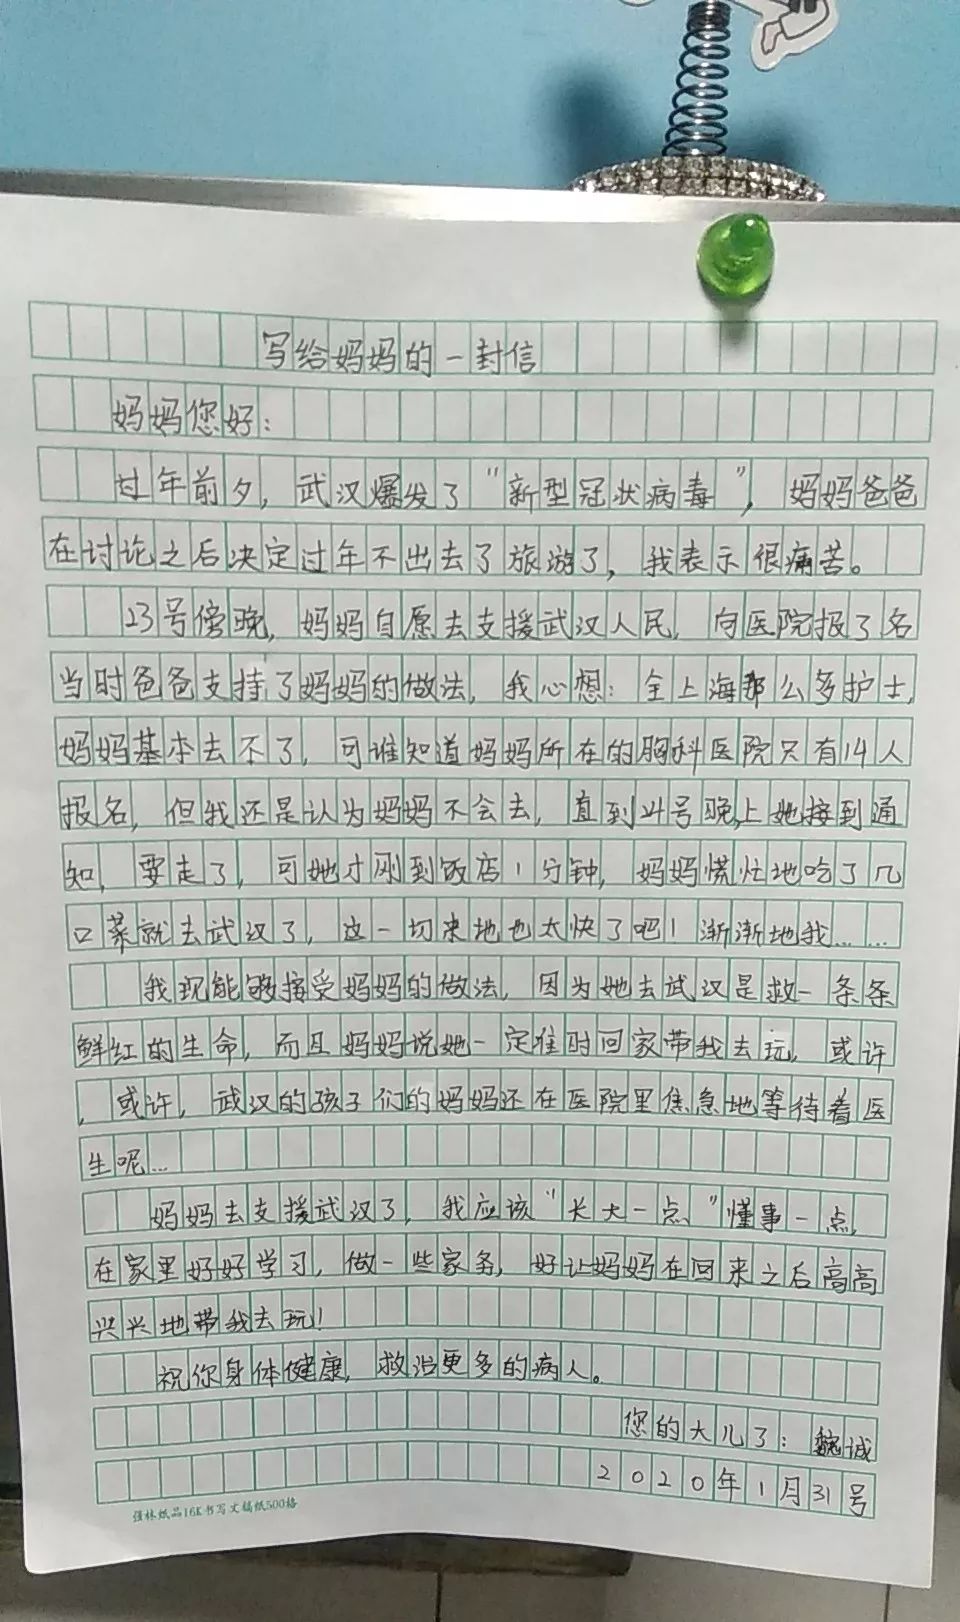 写给妈妈的一封信
妈妈您好：
过年前夕，武汉爆发了“新型冠状病毒”，妈妈爸爸
在讨论之后决定过年不出去了旅游了，我表示很痛苦。
23号傍晚，妈妈自愿去支援武汉人民，向医院报了名
当时爸爸支持了妈妈的做法，我心想：全上海那么多护士，
妈妈基本去不了，可谁知道妈妈所在的胸科医院只有14人
报名，但我还是认为妈妈不会去，直到24号晚上她接到通
知，要走了，可她才刚到饭店1分钟，妈妈慌忙地吃了几
口菜就去武汉了，这一切来地也太快了吧！渐渐地我……
我现能够接受妈妈的做法，因为她去武汉是救一条条
鲜红的生命，而且妈妈说她一定准时回家带我去玩，或许
，或许，武汉的孩子们的妈妈还在医院里焦急地等待着医
生呢…
妈妈去支援武汉了，我应该“长大一点”懂事一点，
在家里好好学习，做一些家务，好让妈妈在回来之后高高
兴兴地带我去玩！
祝你身体健康，救治更多的病人。
您的大儿子：魏诚
2020年1月31号
强林纸品16K书写文稿纸500格